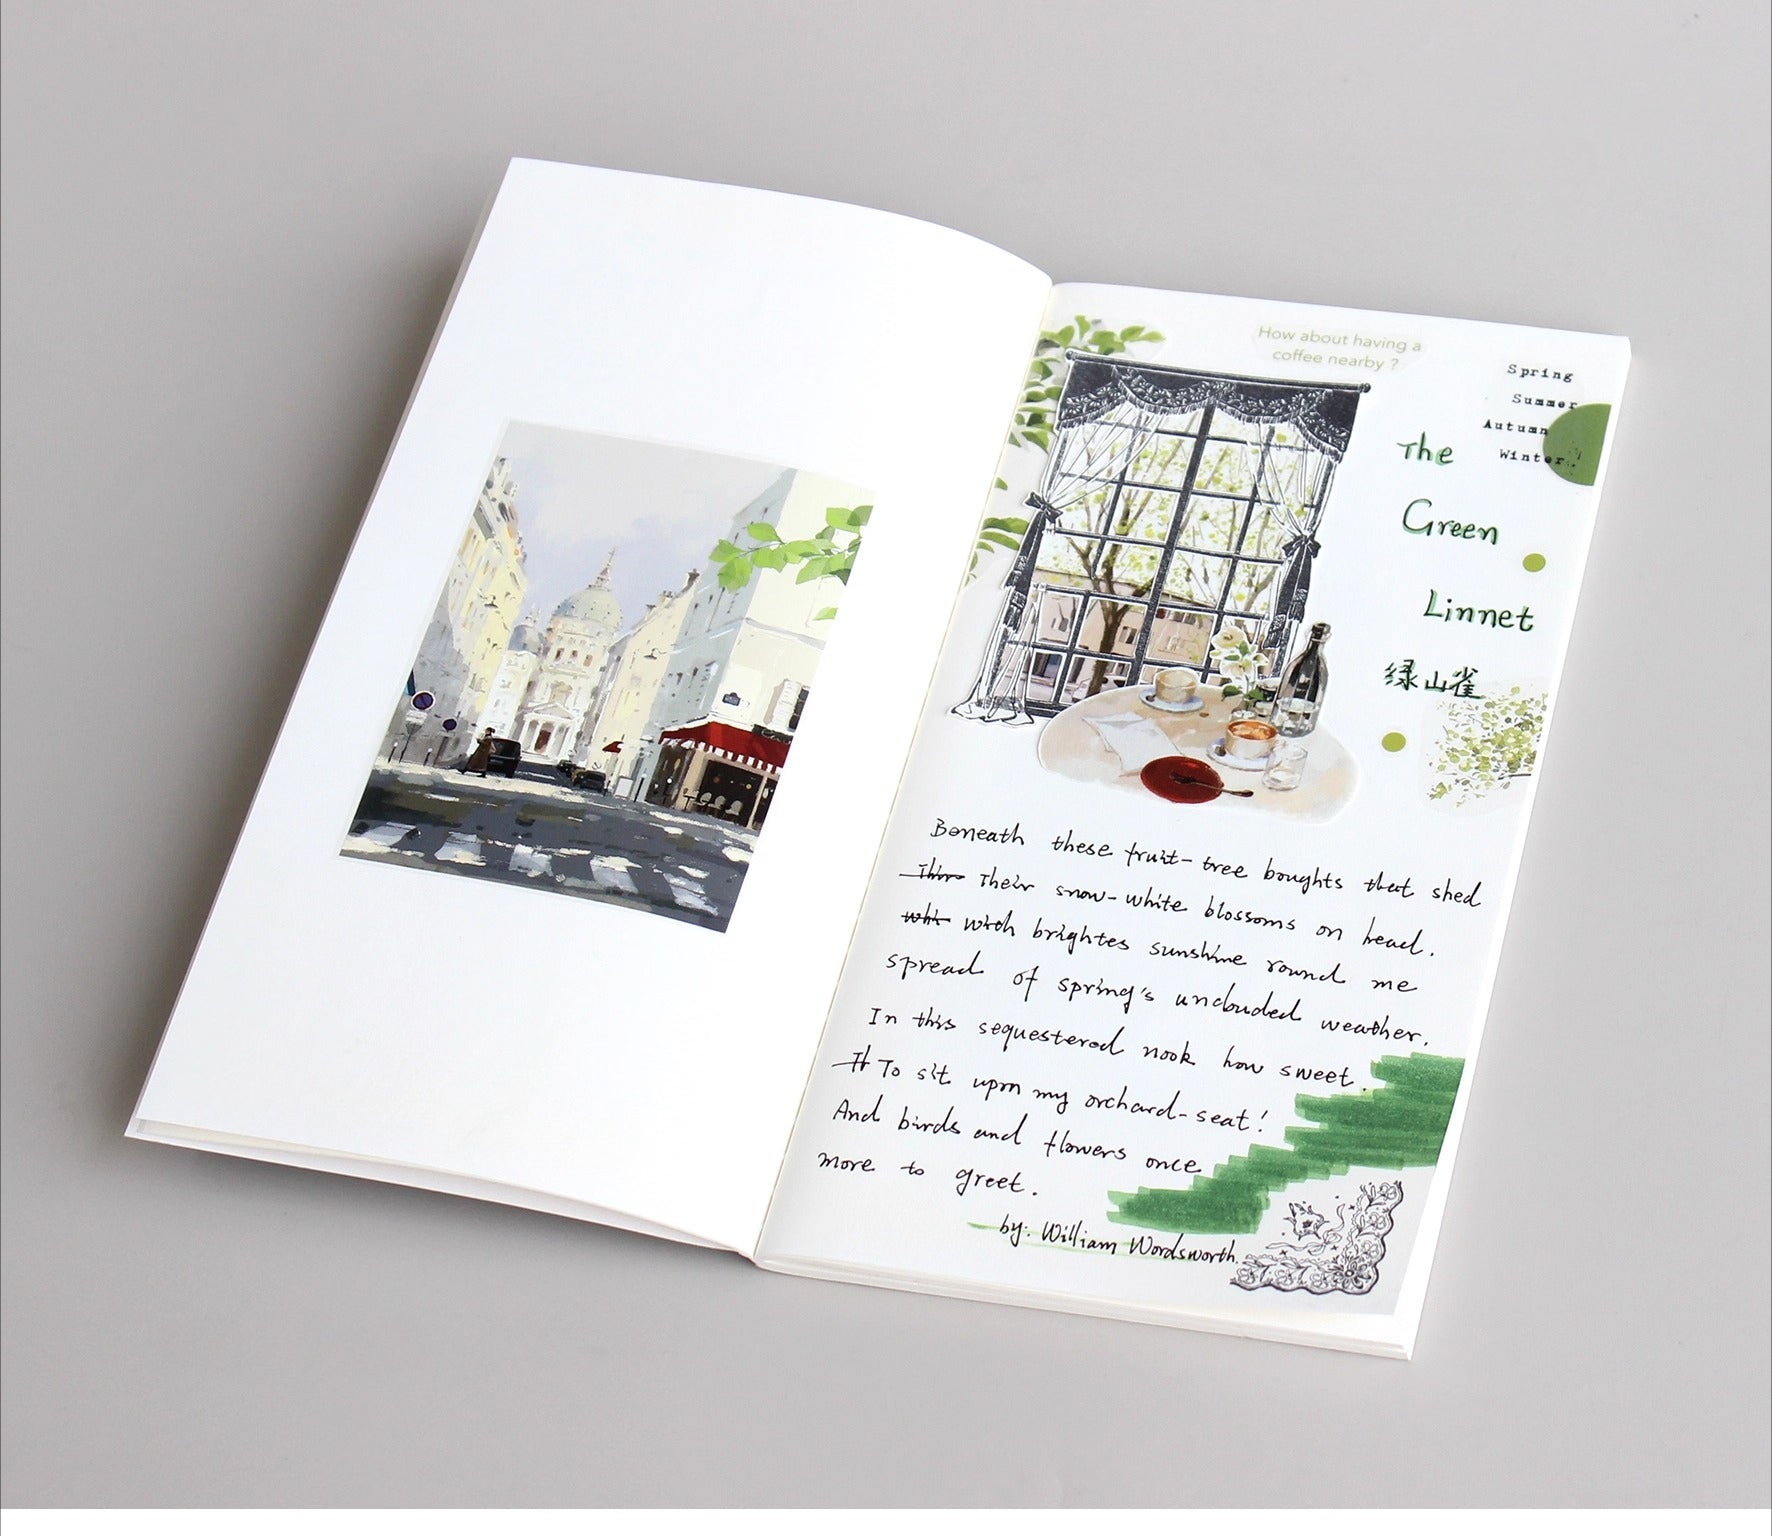 How about having a
coffee nearby ?
Spring
Summer
Autumn
Winter
The
Green
Linnet
绿山雀
Beneath these fruit-tree boughts that shed
Their Their snow-white blossoms on head.
whi with brightes sunshine round me
spread of spring's unclouded weather.
In this sequestered nook how sweet.
It To sit upon my orchard-seat!
And birds and flowers once
more to greet.
by: William Wordsworth.